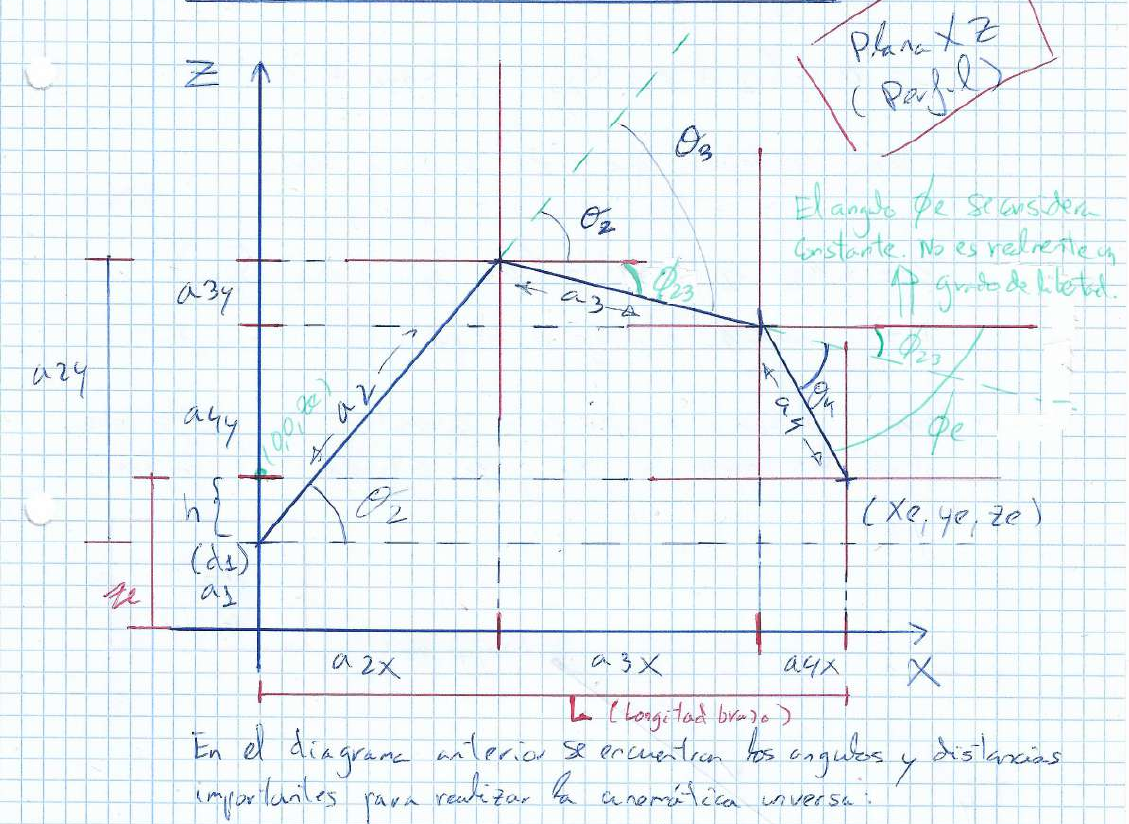 Plano XZ
(Perfil)
Z
θ3
θ2
El angulo ϕe se considera
constante. No es realmente un
grado de libertad.
a3y
ϕ23
a3
a2y
a2
ϕ23
θ4
a4y
(0,0,ze)
a4
ϕe
h
θ2
(xe, ye, ze)
(d1)
ze
a1
a2x
a3x
a4x
X
L (Longitud brazo)
En el diagrama anterior se encuentran los angulos y distancias
importantes para realizar la cinemática inversa: